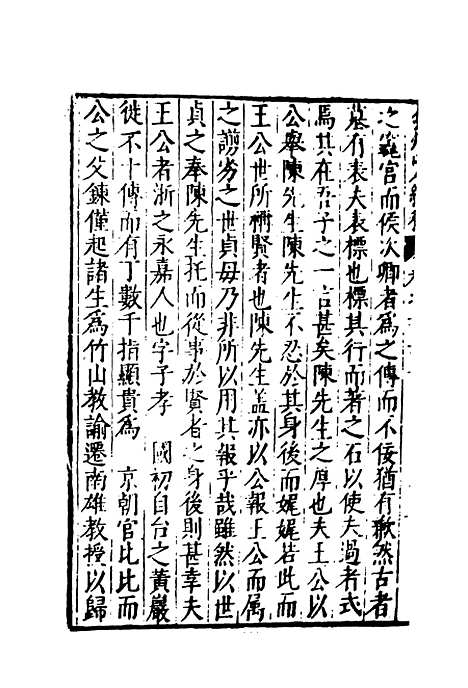 之竁官而侯次卿者為之傳而不佞猶有歉然古者
墓有表夫表標也標其行而著之石以使夫過者式
焉其在吾子之一言甚矣陳先生之厚也夫王公以
公舉陳先生陳先生不忍於其身後而娓娓若此而
王公世所稱賢者也陳先生盖亦以公報王公而属
之謭劣之世貞毋乃非所以用其報乎哉雖然以世
貞之奉陳先生托而從事於賢者之身後則甚幸夫
王公者浙之永嘉人也字子孝　國初自台之黃巖
徙不十傳而有丁數千指顯貴為　京朝官比比而
公之父鍊僅起諸生為竹山教諭遷南雄教授以歸